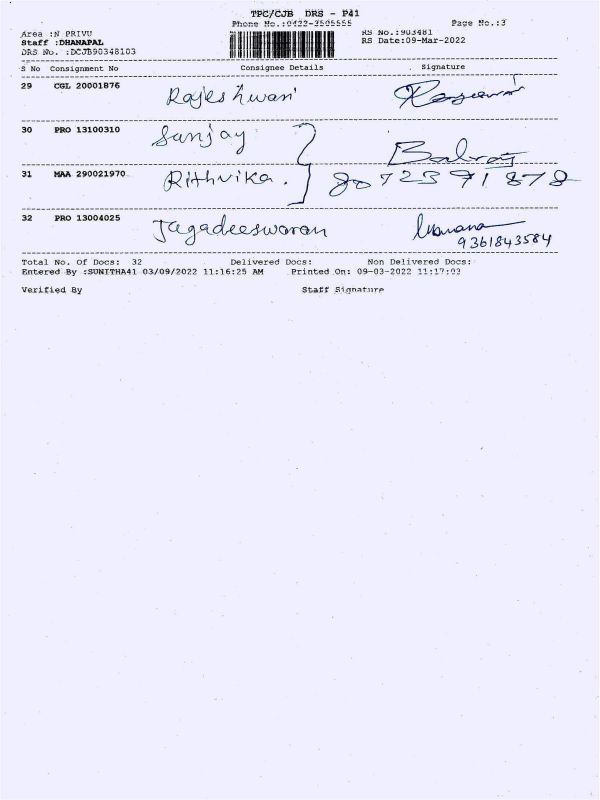 TPC/CJB DRS - P41
Phone No.:0422-3505555 Page No.:3
Area :N PRIVU RS No.:903481
Staff :DHANAPAL RS Date:09-Mar-2022
DRS No. :DCJB90348103
S No Consignment No Consignee Details Signature
29 CGL 20001876 Rajeshwari
30 PRO 13100310 Sanjay
Balraj
31 MAA 290021970 Rithvika. 8072391878
32 PRO 13004025 Jagadeeswaran
9361843584
Total No. Of Docs: 32 Delivered Docs: Non Delivered Docs:
Entered By :SUNITHA41 03/09/2022 11:16:25 AM Printed On: 09-03-2022 11:17:03
Verified By Staff Signature